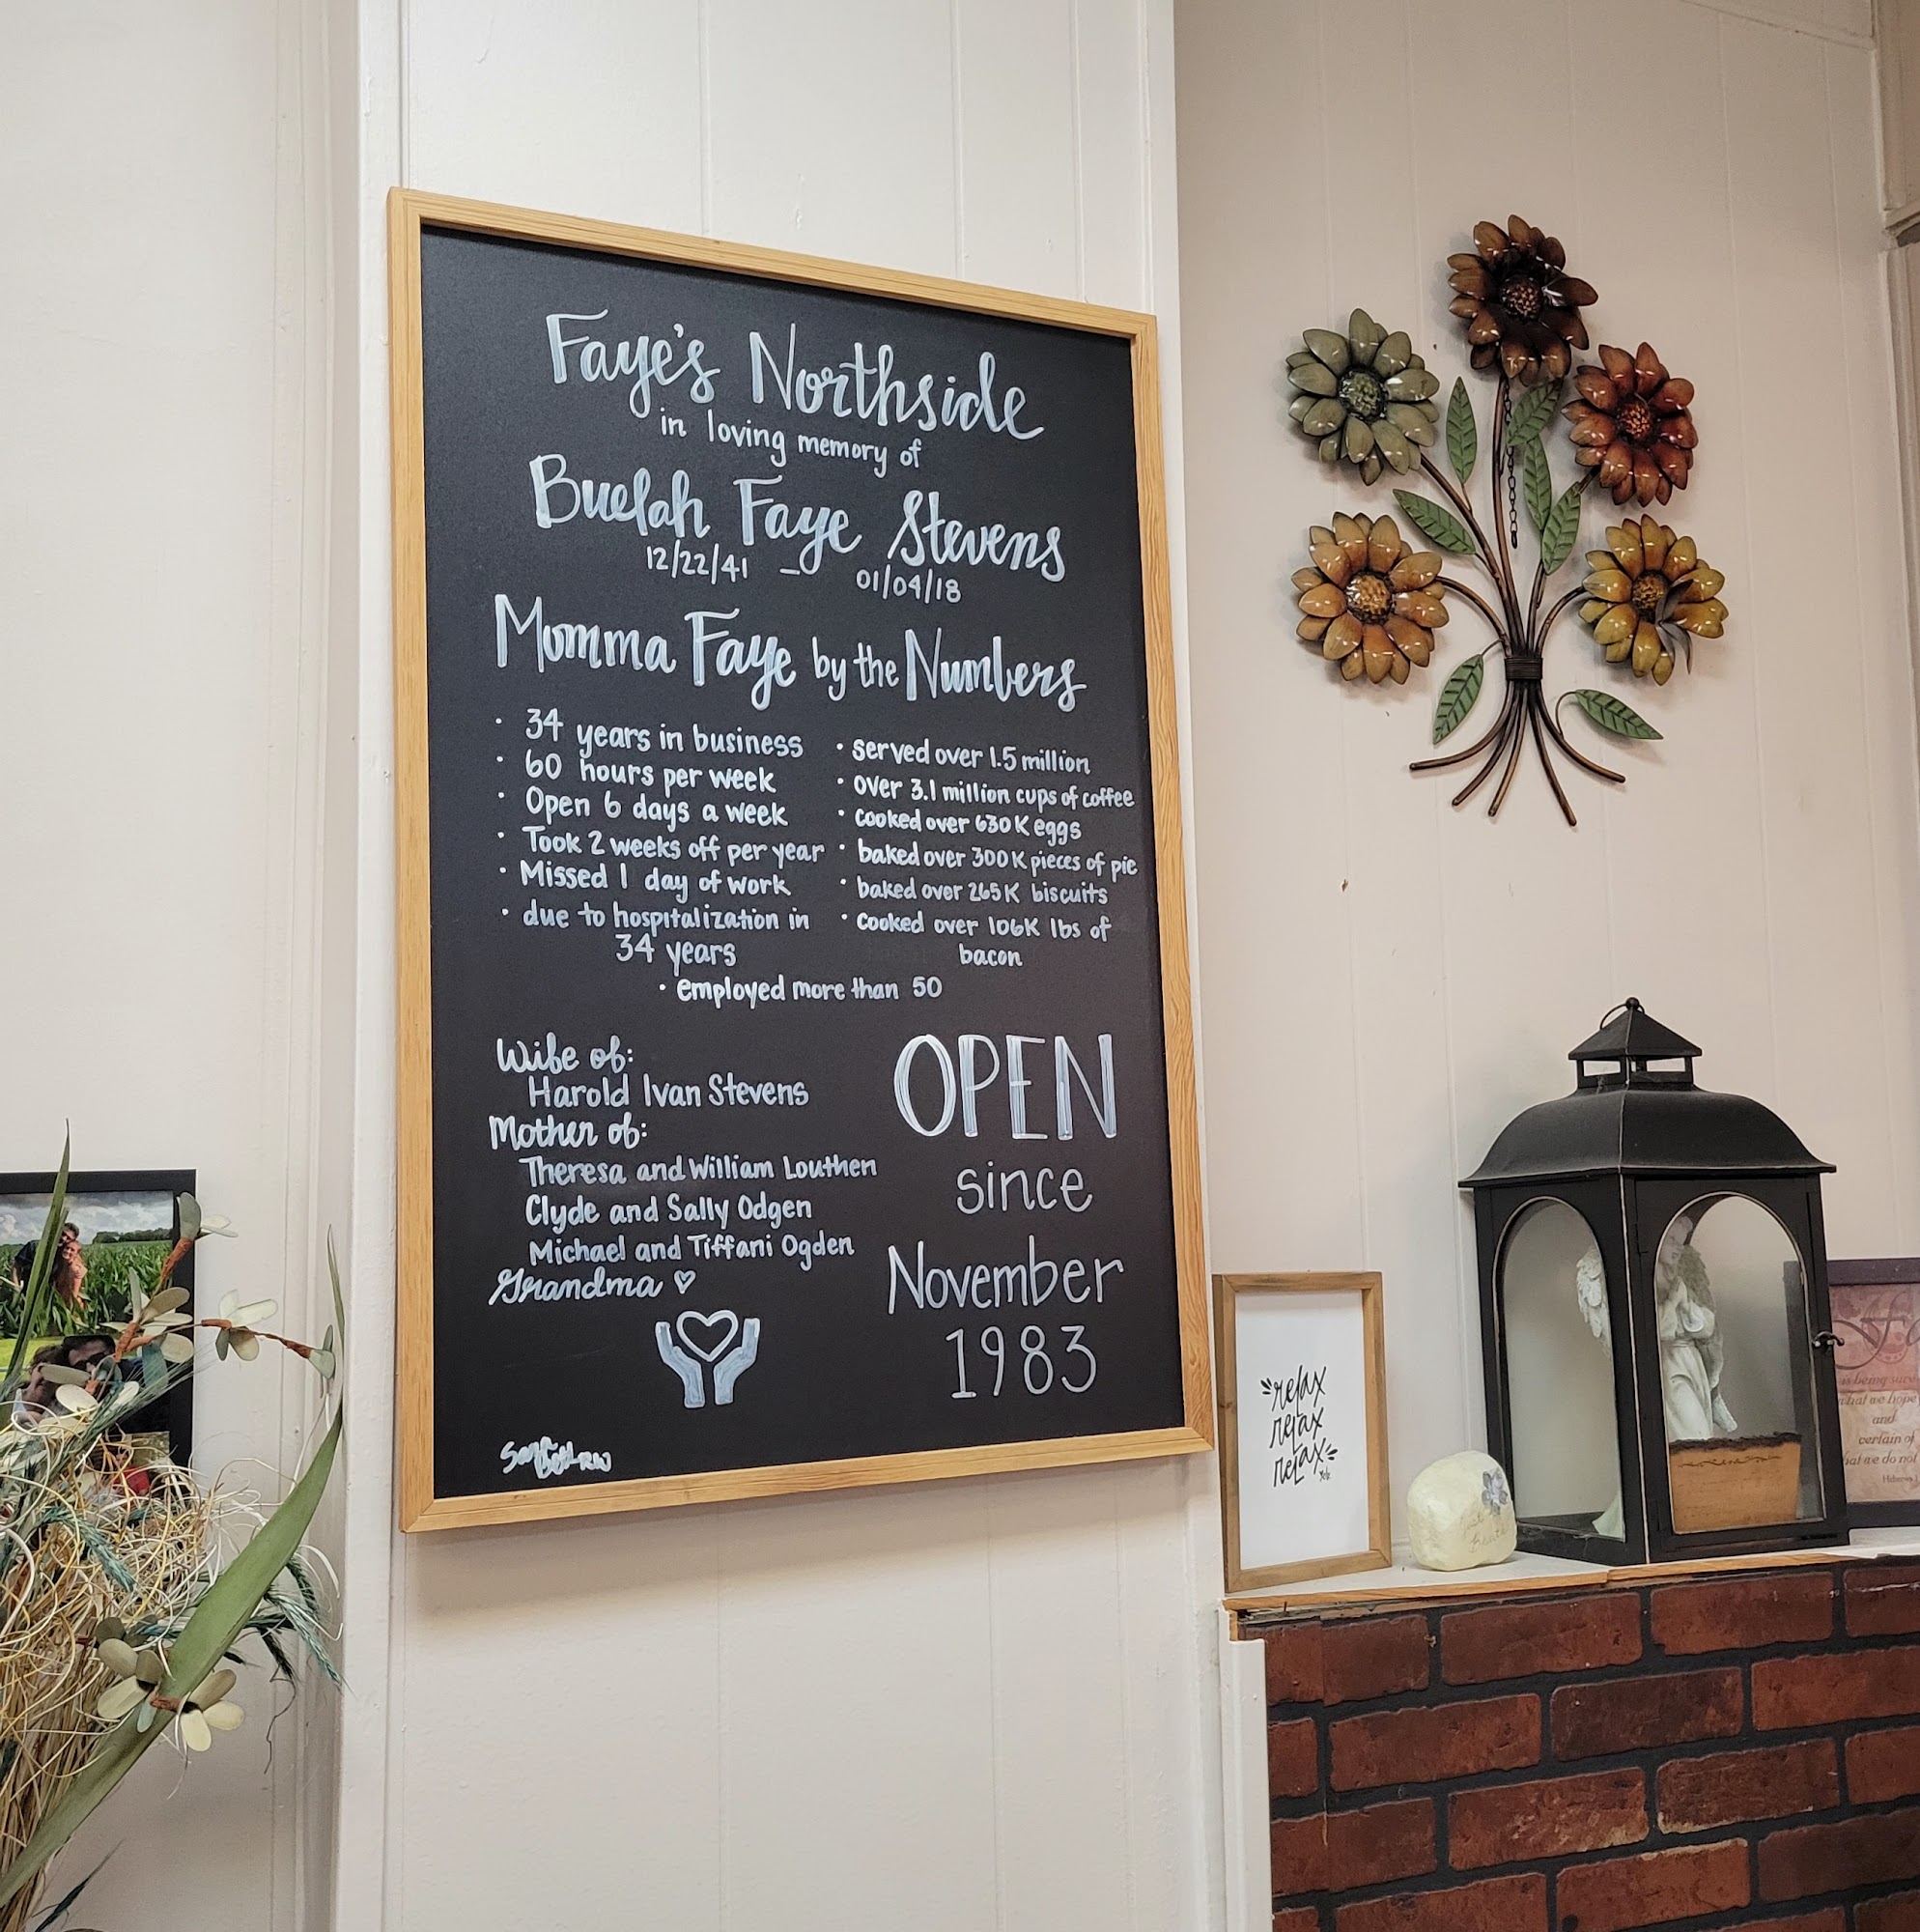 Faye's Northside
in loving memory of
Buelah Faye Stevens
12/22/41 – 01/04/18
Momma Faye by the Numbers
· 34 years in business
· 60 hours per week
· Open 6 days a week
· Took 2 weeks off per year
· Missed 1 day of work
· due to hospitalization in
34 years
· served over 1.5 million
· over 3.1 million cups of coffee
· cooked over 630K eggs
· baked over 300K pieces of pie
· baked over 265K biscuits
· cooked over 106K lbs of
bacon
· employed more than 50
Wife of:
Harold Ivan Stevens
Mother of:
Theresa and William Louthen
Clyde and Sally Odgen
Michael and Tiffani Ogden
Grandma ♡
OPEN
since
November
1983
relax
relax
relax
is being sure
what we hope
and
certain of
what we do not